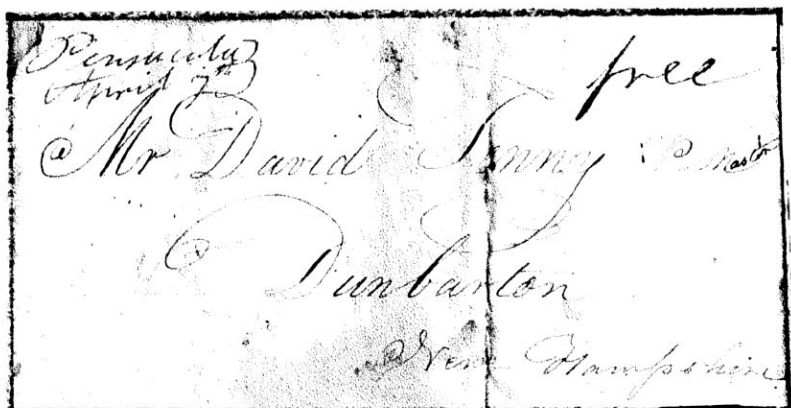 Pensacola
April 7th
free
Mr David Tenny P. Mastr
Dunbarton
New Hampshire